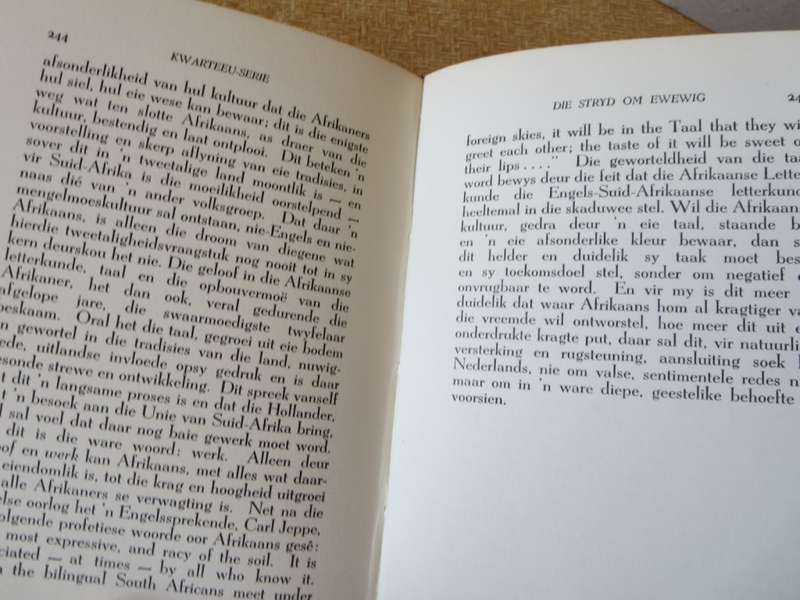 244
KWARTEEU-SERIE
afsonderlikheid van hul kultuur dat die Afrikaners
hul siel, hul eie wese kan bewaar; dit is die enigste
weg wat ten slotte Afrikaans, as draer van die
kultuur, bestendig en laat ontplooi. Dit beteken 'n
voorstelling en skerp aflyning van eie tradisies, in
sover dit in 'n tweetalige land moontlik is — en
vir Suid-Afrika is die moeilikheid oorstelpend —
naas dié van 'n ander volksgroep. Dat daar 'n
mengelmoeskultuur sal ontstaan, nie-Engels en nie-
Afrikaans, is alleen die droom van diegene wat
hierdie tweetaligheidsvraagstuk nog nooit tot in sy
kern deurskou het nie. Die geloof in die Afrikaanse
letterkunde, taal en die opbouvermoë van die
Afrikaner, het dan ook, veral gedurende die
afgelope jare, die swaarmoedigste twyfelaar
beskaam. Oral het die taal, gegroei uit eie bodem
gewortel in die tradisies van die land, nuwig-
uitlandse invloede opsy gedruk en is daar
strewe en ontwikkeling. Dit spreek vanself
dit 'n langsame proses is en dat die Hollander,
'n besoek aan die Unie van Suid-Afrika bring,
sal voel dat daar nog baie gewerk moet word.
dit is die ware woord: werk. Alleen deur
en werk kan Afrikaans, met alles wat daar-
eiendomlik is, tot die krag en hoogheid uitgroei
alle Afrikaners se verwagting is. Net na die
oorlog het 'n Engelssprekende, Carl Jeppe,
profetiese woorde oor Afrikaans gesê:
most expressive, and racy of the soil. It is
— at times — by all who know it.
the bilingual South Africans meet under
DIE STRYD OM EWEWIG
foreign skies, it will be in the Taal that they
greet each other; the taste of it will be sweet
their lips...." Die geworteldheid van die
word bewys deur die feit dat die Afrikaanse
kunde die Engels-Suid-Afrikaanse
heeltemal in die skaduwee stel. Wil die
kultuur, gedra deur 'n eie taal, staande
en 'n eie afsonderlike kleur bewaar, dan
dit helder en duidelik sy taak moet
en sy toekomsdoel stel, sonder om negatief
onvrugbaar te word. En vir my is dit meer
duidelik dat waar Afrikaans hom al kragtiger
die vreemde wil ontworstel, hoe meer dit uit
onderdrukte kragte put, daar sal dit, vir
versterking en rugsteuning, aansluiting soek
Nederlands, nie om valse, sentimentele redes
maar om in 'n ware diepe, geestelike behoefte
voorsien.